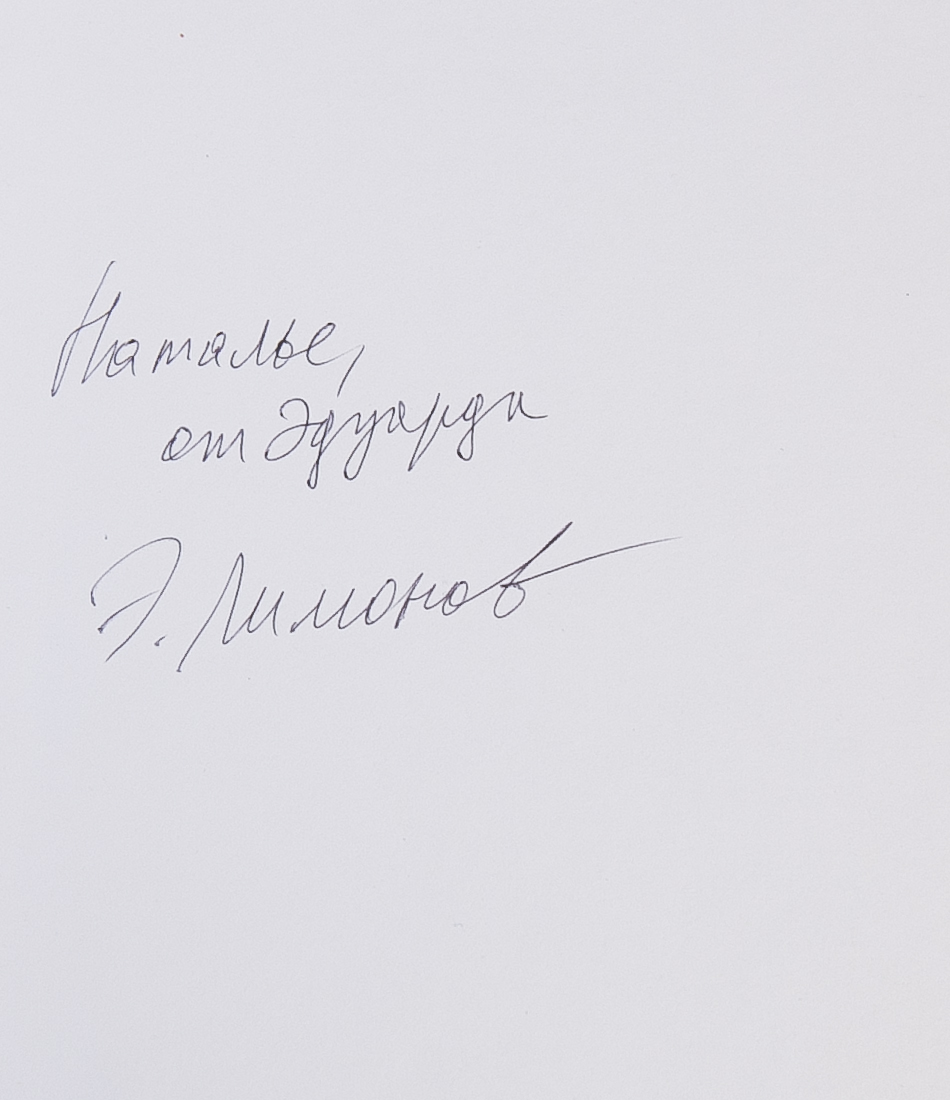 Наталье,
от Эдуарда
Э. Лимонов